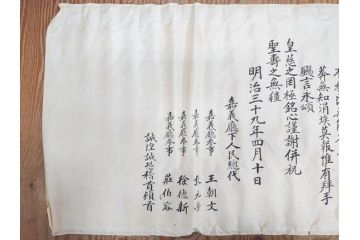 莽無知涓埃莫報惟有拜手
颺言永頌
皇慈之罔極銘心謹謝併祝
聖壽之無疆
明治三十九年四月十日
嘉義廳下人民總代
嘉義廳參事 王朝文
嘉義廳參事
嘉義廳參事 徐德新
嘉義廳參事 莊伯容
誠惶誠恐稽首頓首